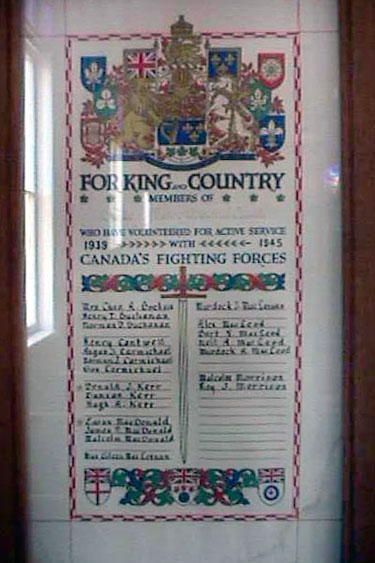 FOR KING AND COUNTRY
MEMBERS OF
WHO HAVE VOLUNTEERED FOR ACTIVE SERVICE
1939 WITH 1945
CANADA'S FIGHTING FORCES
Mrs
Henry F. Buchanan
Norman D. Buchanan
Henry Cantwell
Angus J. Carmichael
Norman J. Carmichael
Carmichael
Donald J. Kerr
Duncan Kerr
Hugh A. Kerr
MacDonald
James MacDonald
Malcolm MacDonald
MacLennan
Murdock J. MacLennan
Alex MacLeod
MacLeod
Neil A. MacLeod
Murdock A. MacLeod
Malcolm Morrison
Roy J. Morrison